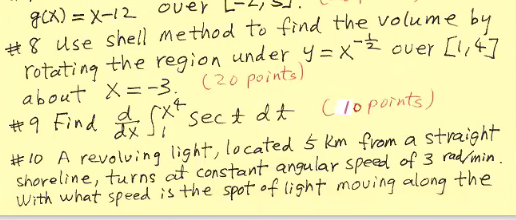 g(x) = x-12 over [-2,5].
#8 Use shell method to find the volume by
rotating the region under y = x^{-1/2} over [1,4]
about x = -3. (20 points)
#9 Find d/dx ∫_1^{x^4} sec t dt (10 points)
#10 A revolving light, located 5 km from a straight
shoreline, turns at constant angular speed of 3 rad/min.
With what speed is the spot of light moving along the